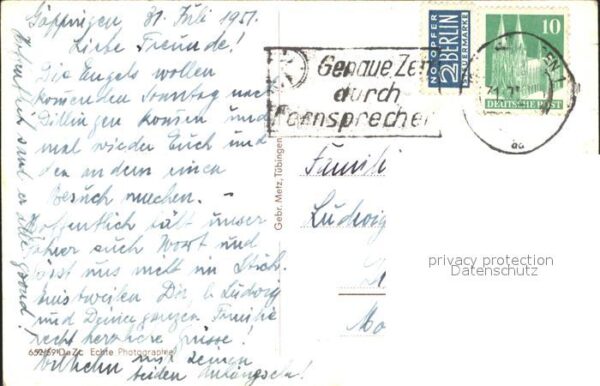 Göppingen 31. Juli 1951.
Liebe Freunde!
Die Engels wollen
kommenden Sonntag nach
Dillingen kommen und
mal wieder Euch und
den andern einen
Besuch machen. –
Hoffentlich hält unser
Fahrer auch Wort und
lässt uns nicht im Stich.
Einstweilen Dir, b. Ludwig
und Deiner ganzen Familie
recht herzliche Grüsse!
Wilhelm mit seinen
beiden Anhängseln!
Hoffentlich seid er alle gesund!
652/59 Da Zc Echte Photographie
Gebr. Metz, Tübingen
Genaue Zeit
durch
Fernsprecher
NOTOPFER
2 BERLIN
STEUERMARKE
10
DEUTSCHE POST
Famili
Ludwig
privacy protection
Datenschutz